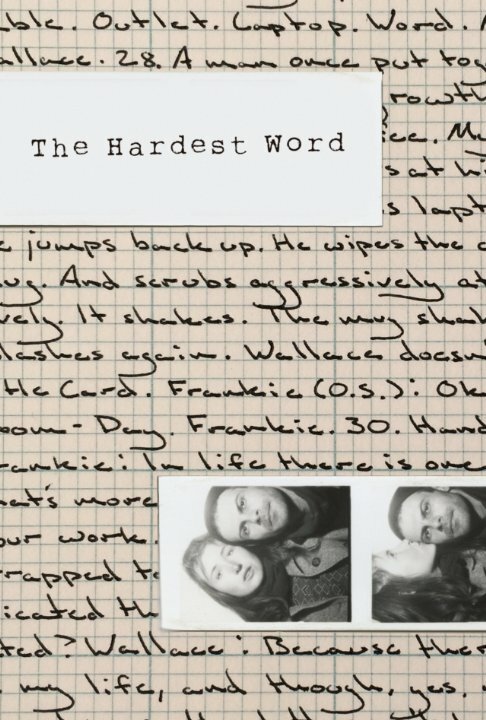 ble. Outlet. Laptop. Word.
allace. 28. A man once put tog
rowth
The Hardest Word
ice. Mu
sat hi
s lapt
e jumps back up. He wipes the c
ug. And scrubs aggressively at
vely. It shakes. The mug shak
lashes again. Wallace doesn'
tle Card. Frankie (O.S.): Ok
oom - Day. Frankie. 30. Hand
rankie: In life there is one
hat's more
our work.
rapped to
icated th
ted? Wallace: Because ther
my life, and though, yes,